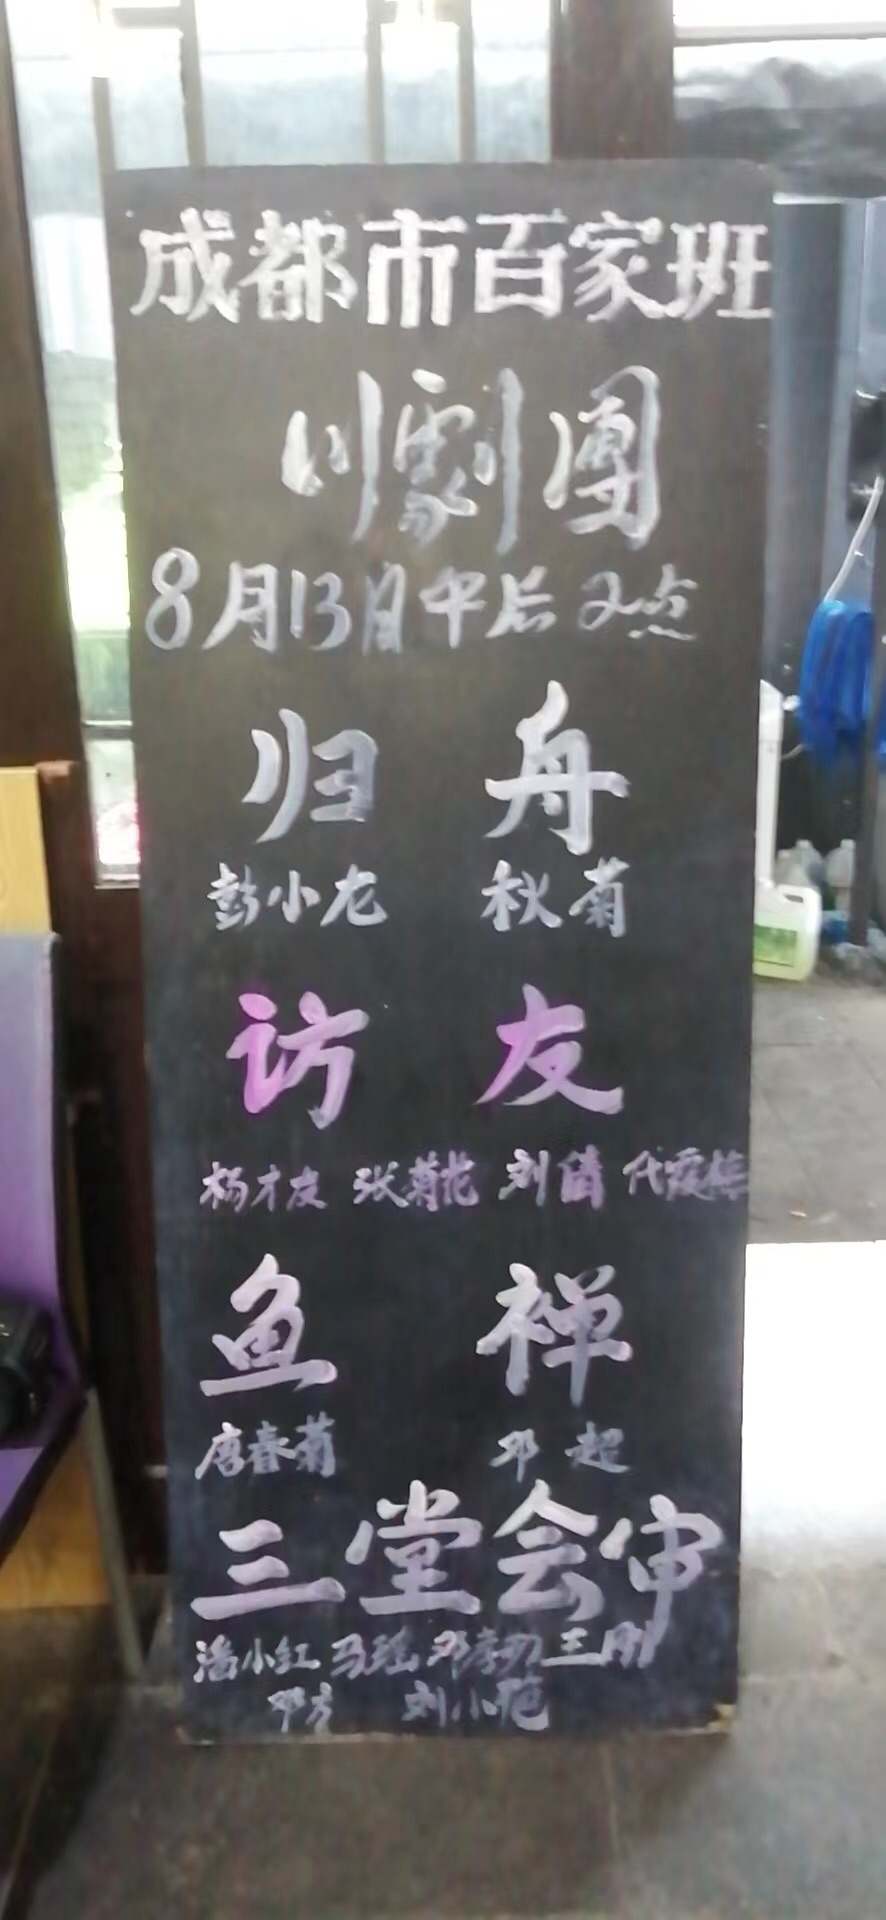 成都市百家班
川劇團
8月13日午后2点
归 舟
彭小龙 秋菊
访 友
杨才友 张菊花 刘倩 代霞
鱼 禅
唐春菊 邓超
三堂会审
潘小红 马瑶 邓 王刚
邓方 刘小艳